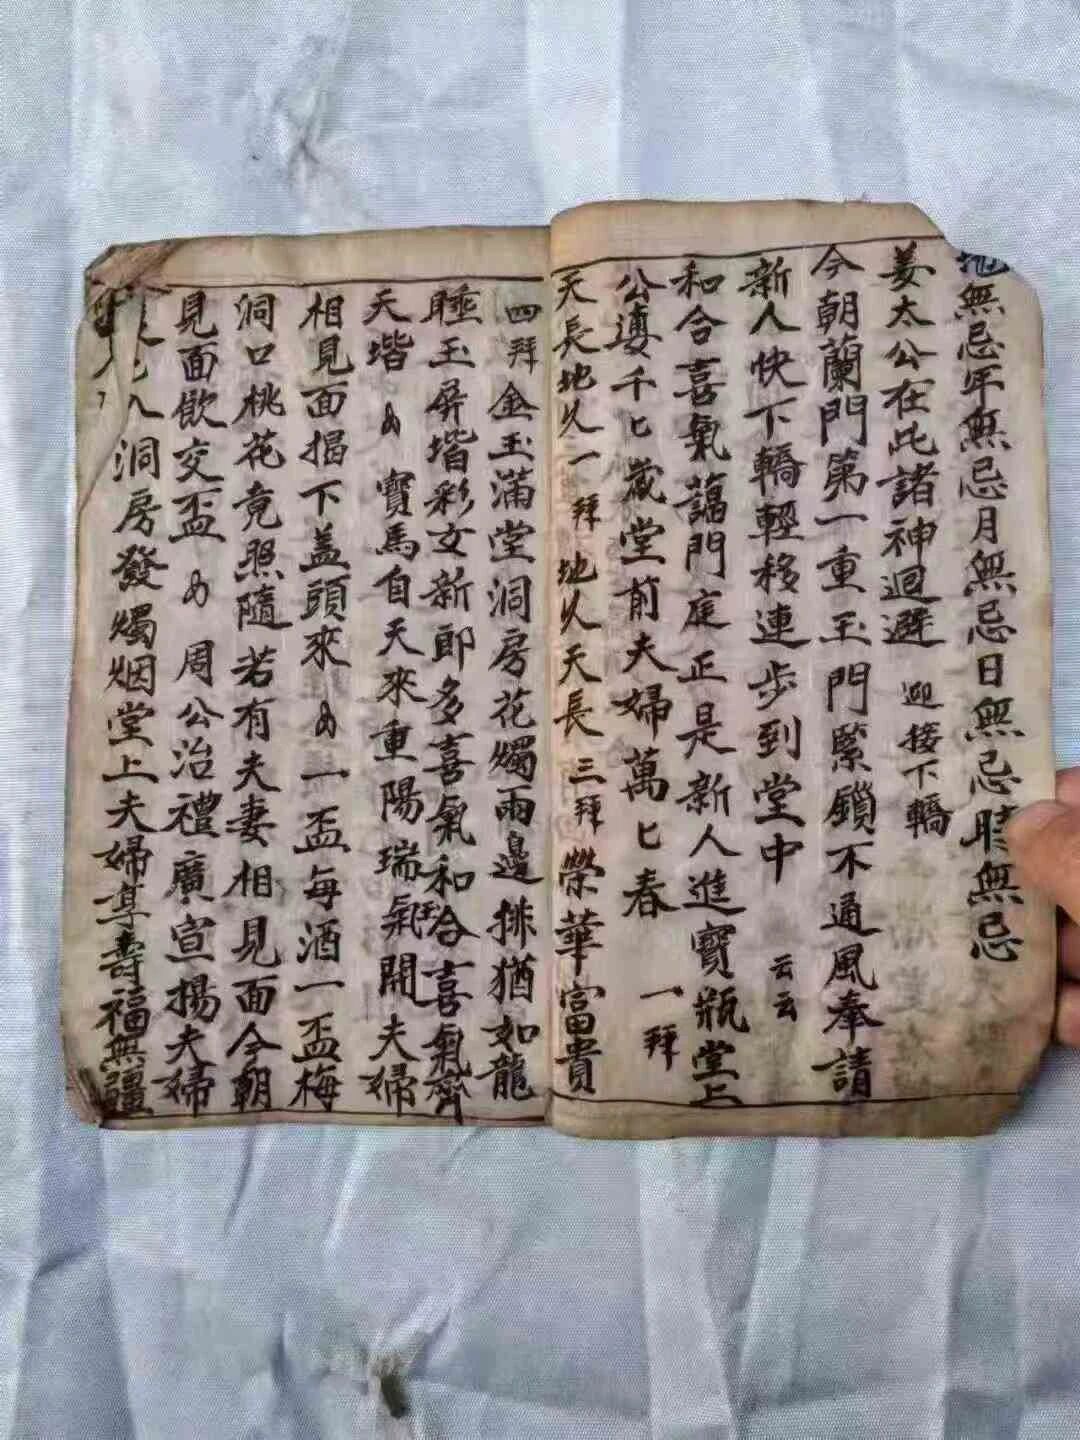 地無忌年無忌月無忌日無忌時無忌
姜太公在此諸神迴避 迎接下轎
今朝蘭門第一重玉門緊鎖不通風奉請
新人快下轎輕移連步到堂中 云云
和合喜氣藹門庭正是新人進寶瓶堂上
公婆千匕歲堂前夫婦萬匕春 一拜
天長地久一拜 地久天長 三拜 榮華富貴
四拜 金玉滿堂洞房花燭兩邊排猶如龍
睡玉屏堦彩女新郎多喜氣和合喜氣齊
天堦 又 寶馬自天來重陽瑞氣開夫婦
相見面揭下盖頭來 又 一盃每酒一盃梅
洞口桃花竟照隨若有夫妻相見面今朝
見面飲交盃 又 周公治禮廣宣揚夫婦
入洞房發燭烟堂上夫婦享壽福無疆